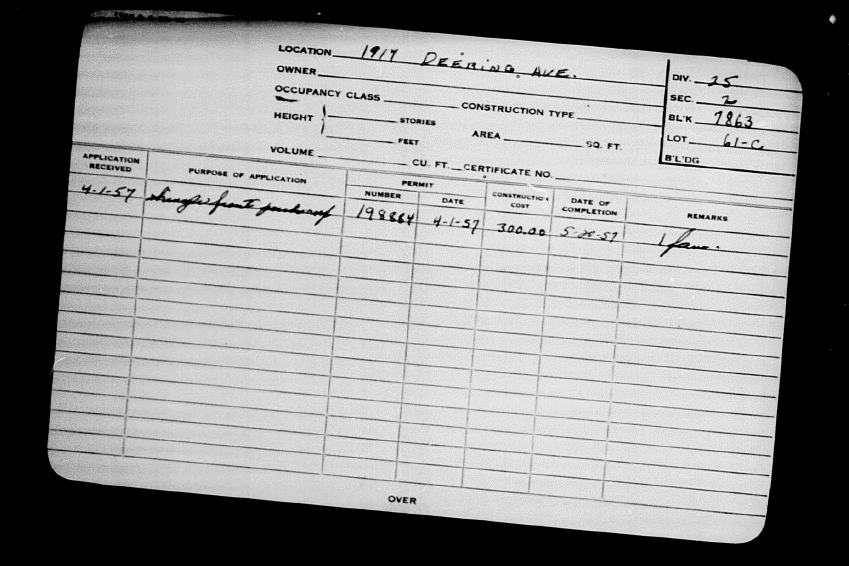 LOCATION 1917 DEERING AVE.
OWNER
OCCUPANCY CLASS CONSTRUCTION TYPE
HEIGHT STORIES
FEET AREA SQ. FT.
VOLUME CU. FT. CERTIFICATE NO.
DIV. 25
SEC. 2
BL'K 7863
LOT 61-C
B'L'DG
APPLICATION RECEIVED PURPOSE OF APPLICATION PERMIT NUMBER DATE CONSTRUCTION COST DATE OF COMPLETION REMARKS
4-1-57 shingle front porch roof 198884 4-1-57 300.00 5-28-57 1 fam.
OVER